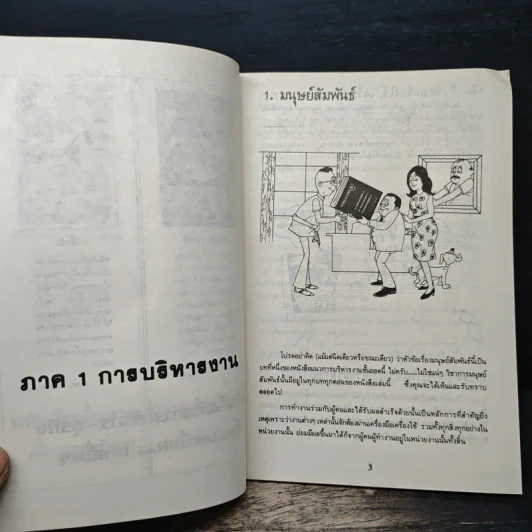 ภาค 1 การบริหารงาน
1. มนุษย์สัมพันธ์
โปรดอย่าคิด (แม้แต่นิดเดียวหรือขณะเดียว) ว่าหัวข้อเรื่องมนุษย์สัมพันธ์นี้เป็น
บทที่หนึ่งของหนังสือแนวการบริหารงานชั้นยอดนี้ ไม่ครับ....ไม่ใช่แน่ๆ วิชาการมนุษย์
สัมพันธ์นั้นมีอยู่ในทุกบททุกตอนของหนังสือเล่มนี้ ซึ่งคุณจะได้เห็นและรับทราบ
ตลอดไป
การทำงานร่วมกับผู้คนและได้รับผลสำเร็จด้วยนั้นเป็นหลักการที่สำคัญยิ่ง
เหตุเพราะว่างานต่างๆ เหล่านั้นจักต้องผ่านเครื่องมือเครื่องใช้ รวมทั้งทุกสิ่งทุกอย่างใน
หน่วยงานนั้น ย่อมมีผลขึ้นมาได้ก็จากผู้คนผู้ทำงานอยู่ในหน่วยงานนั้นทั้งสิ้น
3